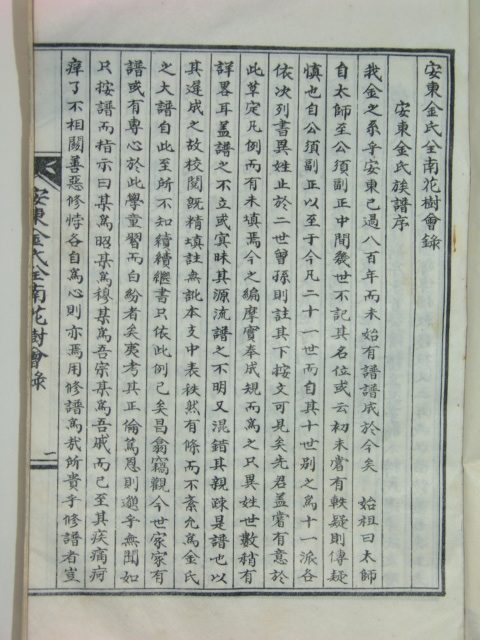 安東金氏全南花樹會錄
安東金氏族譜序
我金之系乎安東已過八百年而未始有譜譜成於今矣 始祖曰太師
自太師至公須副正中間幾世不記其名位或云初未嘗有軼疑則傳疑
慎也自公須副正以至于今凡二十一世而自其十世別之爲十一派各
依次列書異姓止於二世曾孫則註其下按文可見矣先君盖嘗有意於
此草定凡例而有未填焉今之編摩實奉成規而爲之只異姓世數稍有
詳畧耳盖譜之不立或寘昧其源流譜之不明又混錯其親疎是譜也以
其遲成之故校閱旣精填註無訛本支中表秩然有條而不紊允爲金氏
之大譜自此至所不知續續繼書只依此例已矣昌翕竊觀今世家家有
譜或有專心於此學童習而白紛者矣夷考其正倫篤恩則邈乎無聞如
只按譜而指示曰某爲昭某爲穆某爲吾宗某爲吾戚而已至其疾痛疴
痒了不相關善惡修悖各自爲心則亦焉用修譜爲哉所貴乎修譜者豈
安東金氏全南花樹會錄
一